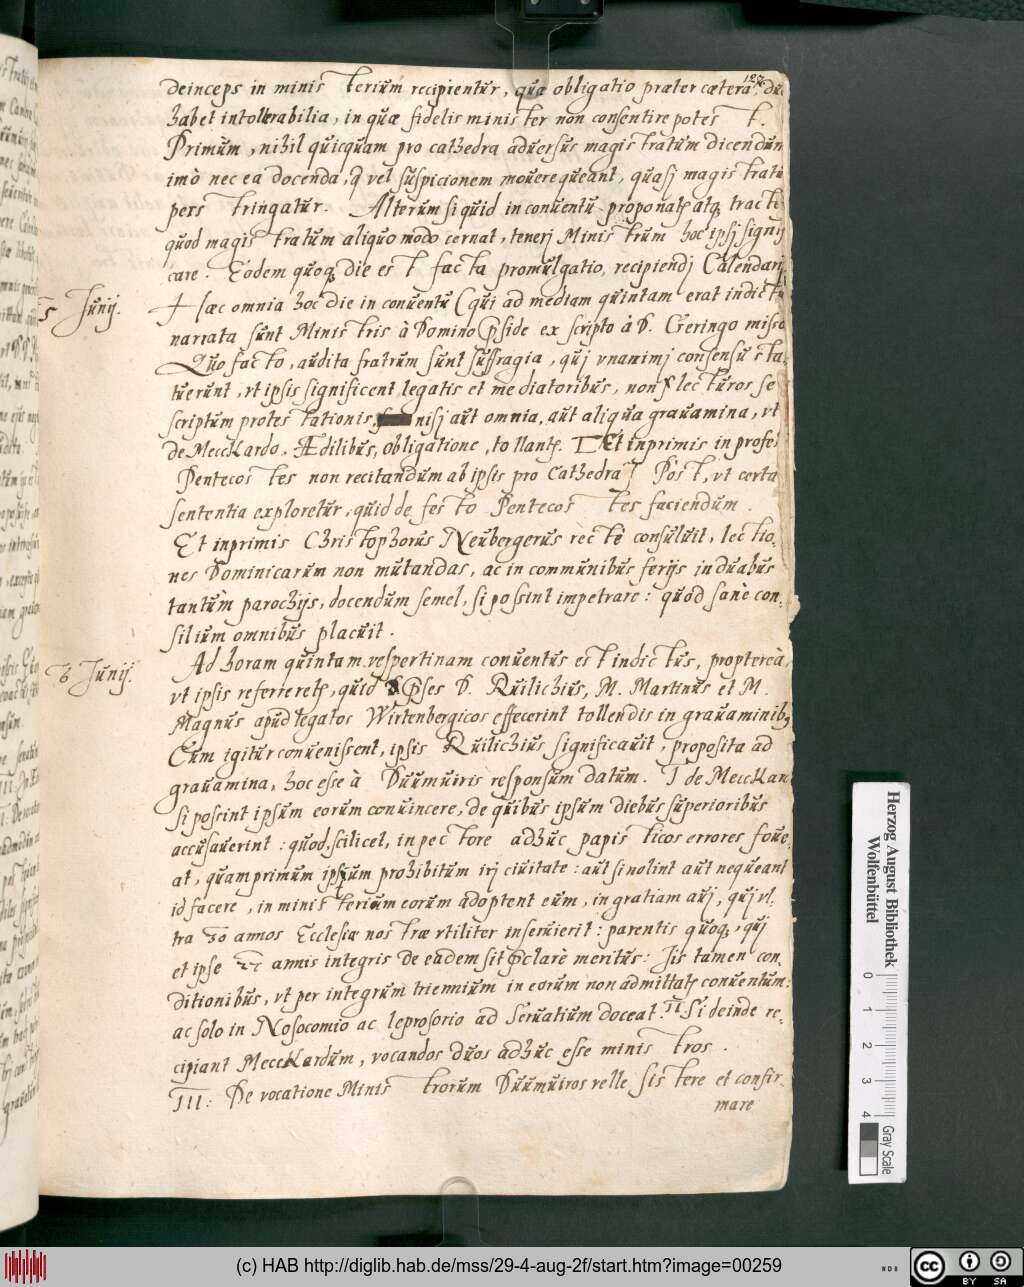 127
deinceps in ministerium recipientur, quæ obligatio præter cætera du
habet intollerabilia, in quæ fidelis minister non consentire potest.
Primum, nihil quicquam pro cathedra adversus magistratum dicendum
imò nec ea docenda, q vel suspicionem mouere queant, quasj magistratu
perstringatur. Alterum si quid in conuentu proponatz atq tracte
quod magistratum aliquo modo cernat, tenerj Ministrum hoc ipsj signifi
care. Eodem quoq die est facta promulgatio, recipiendj Calendarij
5 Junij.
Hæc omnia hoc die in conuentu (qui ad mediam quintam erat indictu
narrata sunt Ministris à Domino Pside ex scripto à D. Geringo misso
Quo facto, audita fratrum sunt suffragia, quj vnanimj consensu sta,
tuerunt, vt ipsis significent legatis et mediatoribus, non lecturos se
scriptum protestationis, nisj aut omnia, aut aliqua grauamina, vt
de Meckardo, Ædilibus, obligatione, tollantz. Et inprimis in profes
Pentecostes non recitandum ab ipsis pro Cathedra Post, vt certa
sententia exploretur, quid de festo Pentecostes faciendum.
Et inprimis Christophorus Neubergerus rectè consuluit, lectio,
nes Dominicarum non mutandas, ac in communibus ferijs in duabus
tantùm parochijs, docendum semel, si possint impetrare: quod sanè con,
silium omnibus placuit.
6 Junij.
Ad horam quintam vespertinam conuentus est indictus, propterea,
vt ipsis referretz, quid Pses D. Rulichius, M. Martinus et M.
Magnus apud legatos Wirtenbergicos effecerint tollendis in grauaminibq
Cum igitur conuenissent, ipsis Rulichius significauit, proposita ad
grauamina, hoc esse à Duumuiris responsum datum. I de Meckar
si possint ipsum eorum conuincere, de quibus ipsum diebus superioribus
accusauerint: quod, scilicet, in pectore adhuc papisticos errores foue,
at, quamprimum ipsum prohibitum irj ciuitate: aut si nolint aut nequeant
id facere, in ministerium eorum adoptent eum, in gratiam auj, quj vl,
tra 30 annos Ecclesiæ nostræ vtiliter inseruierit: parentis quoq, quj
et ipse annis integris de eadem sit Pclarè meritus: Jis tamen con,
ditionibus, vt per integrum triennium in eorum non admittatz conuentum:
ac solo in Nosocomio ac leprosorio ad Seruatium doceat. II Si deinde re,
cipiant Meckardum, vocandos duos adhuc esse ministros.
III: De vocatione Ministrorum Duumuiros velle sistere et confir,
mare
Herzog August Bibliothek
Wolfenbüttel
0 1 2 3 4
Gray Scale
(c) HAB http://diglib.hab.de/mss/29-4-aug-2f/start.htm?image=00259
WDB
cc BY SA